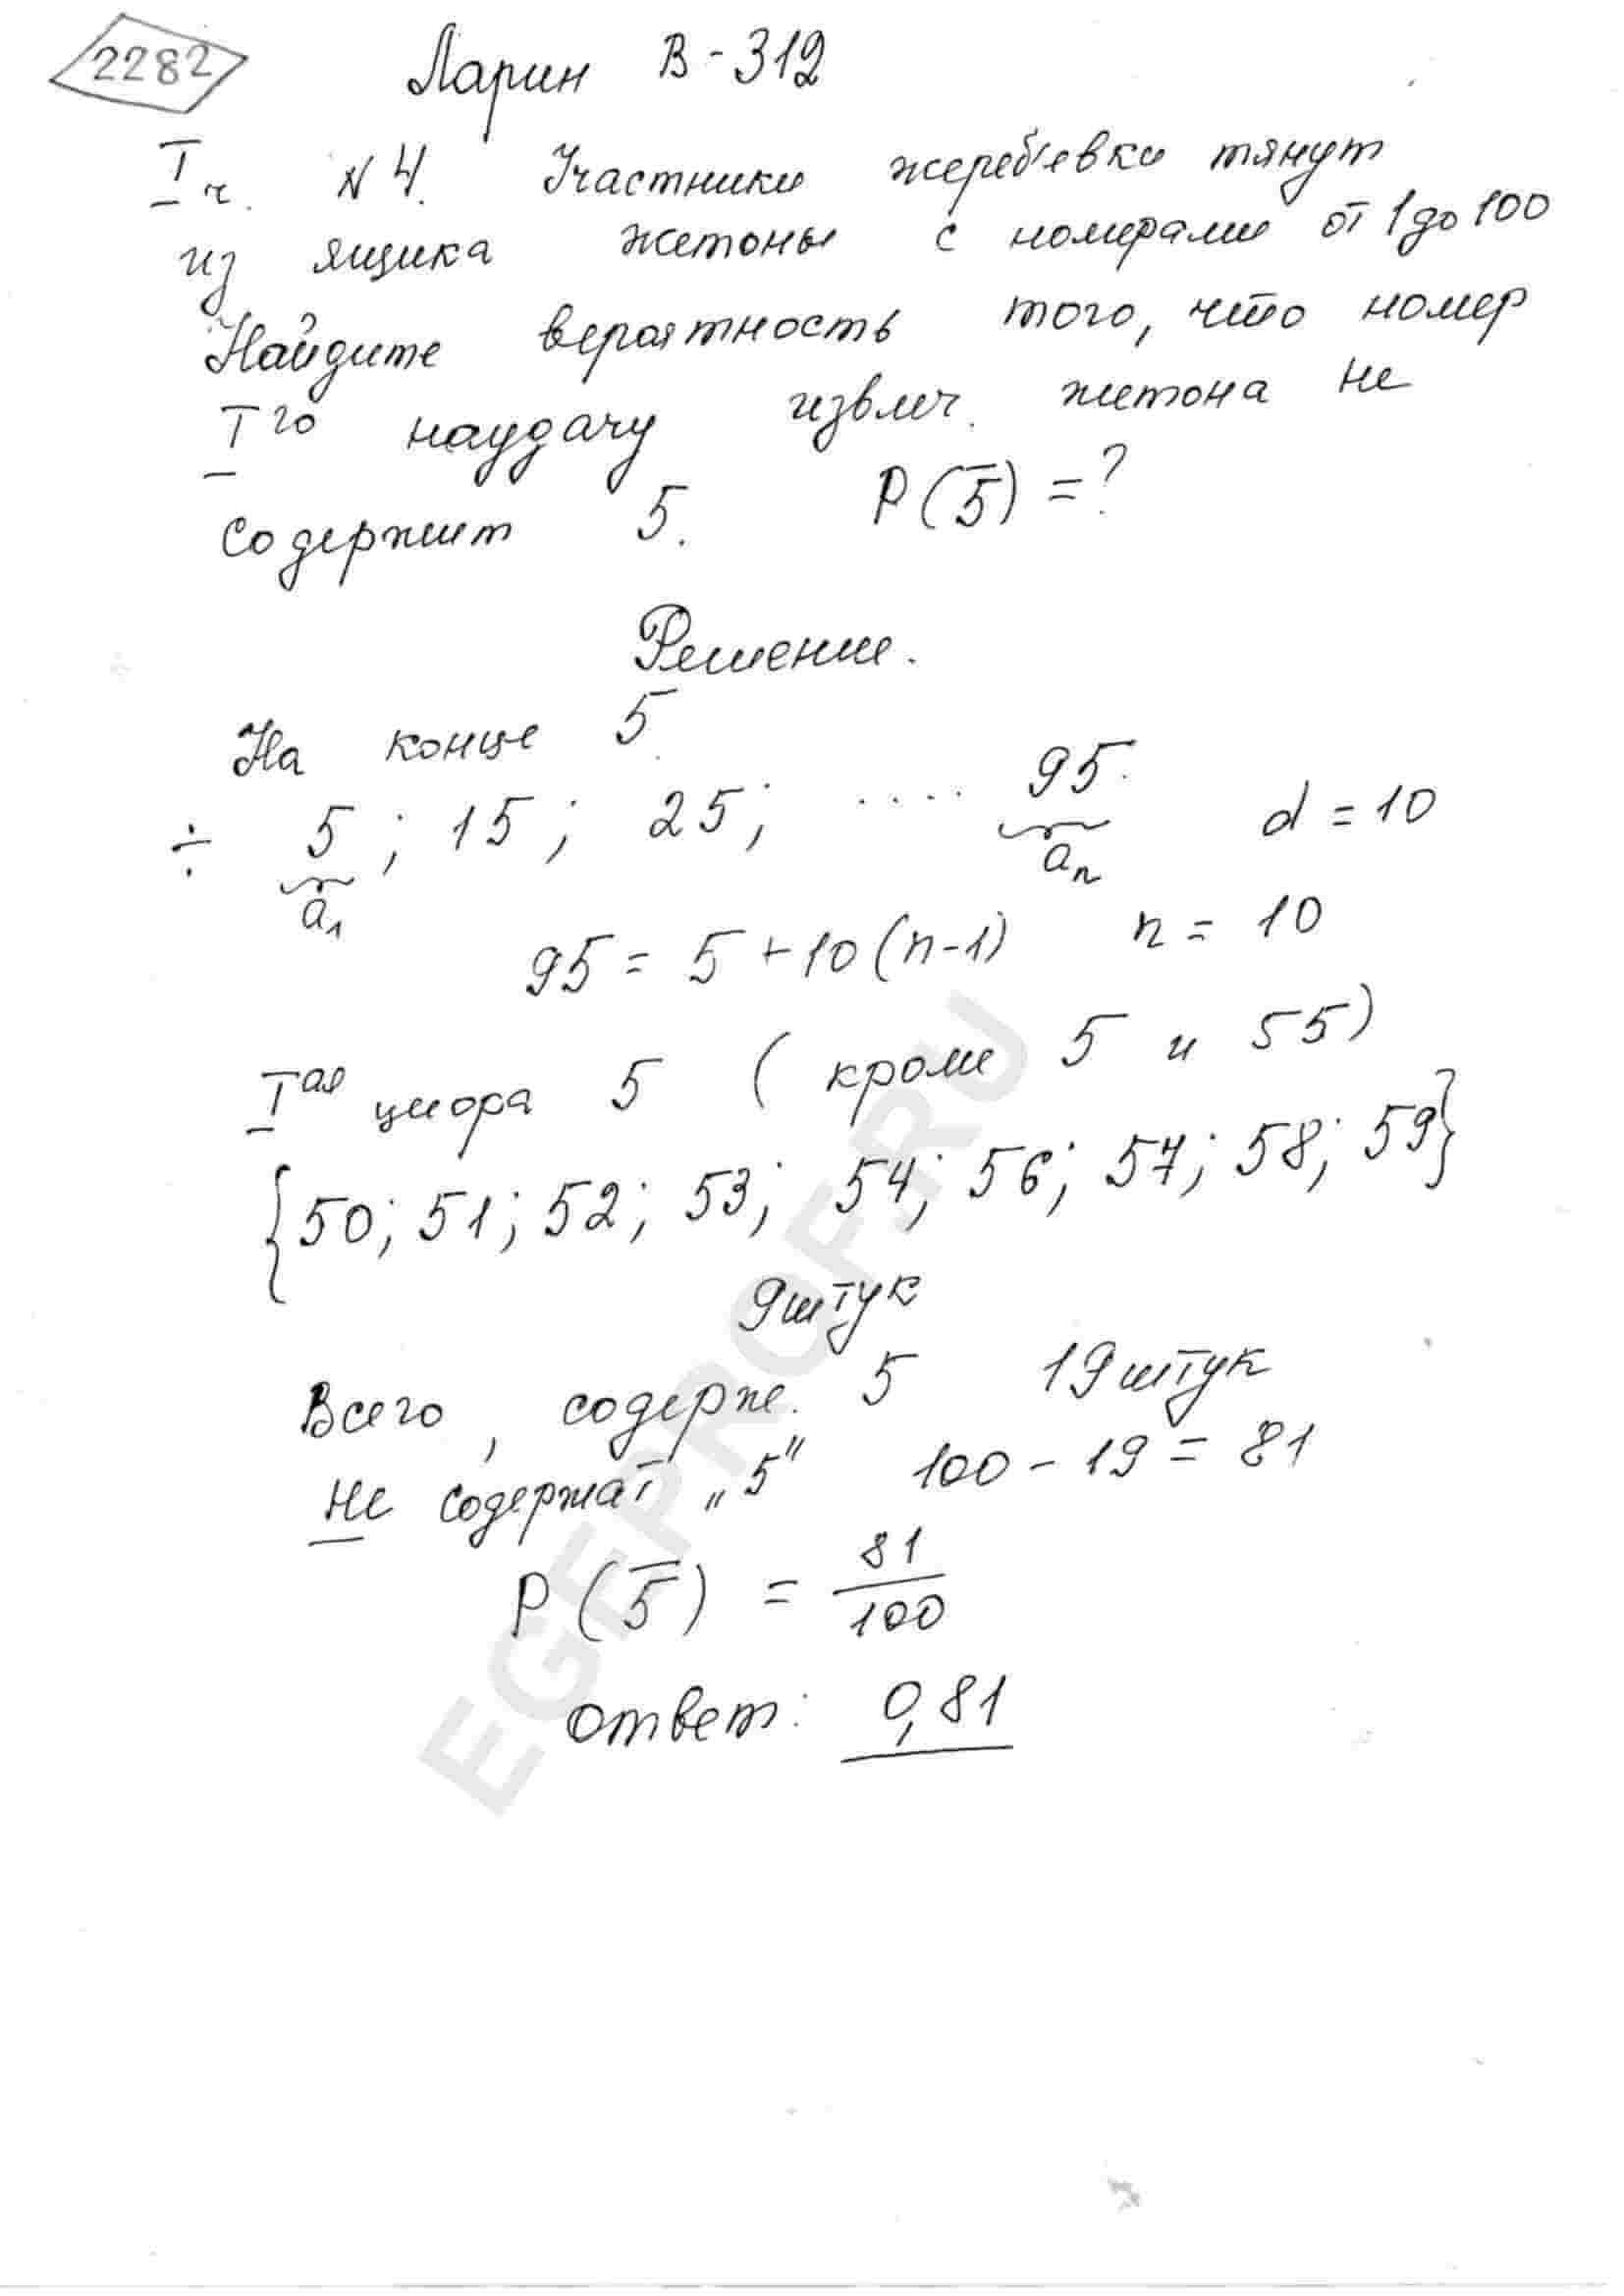 2282
Ларин В-312
I ч. N 4. Участники жеребьевки тянут
из ящика жетоны с номерами от 1 до 100
Найдите вероятность того, что номер
I го наудачу извлеч. жетона не
содержит 5. P(5̅) = ?
Решение.
На конце 5.
÷ 5; 15; 25; .... 95. d = 10
a₁ aₙ
95 = 5 + 10(n-1) n = 10
I ая цифра 5 (кроме 5 и 55)
{50; 51; 52; 53; 54; 56; 57; 58; 59}
9 штук
Всего, содерж. 5 19 штук
Не содержат „5" 100 - 19 = 81
P(5̅) = 81/100
ответ: 0,81
EGEPROF.RU